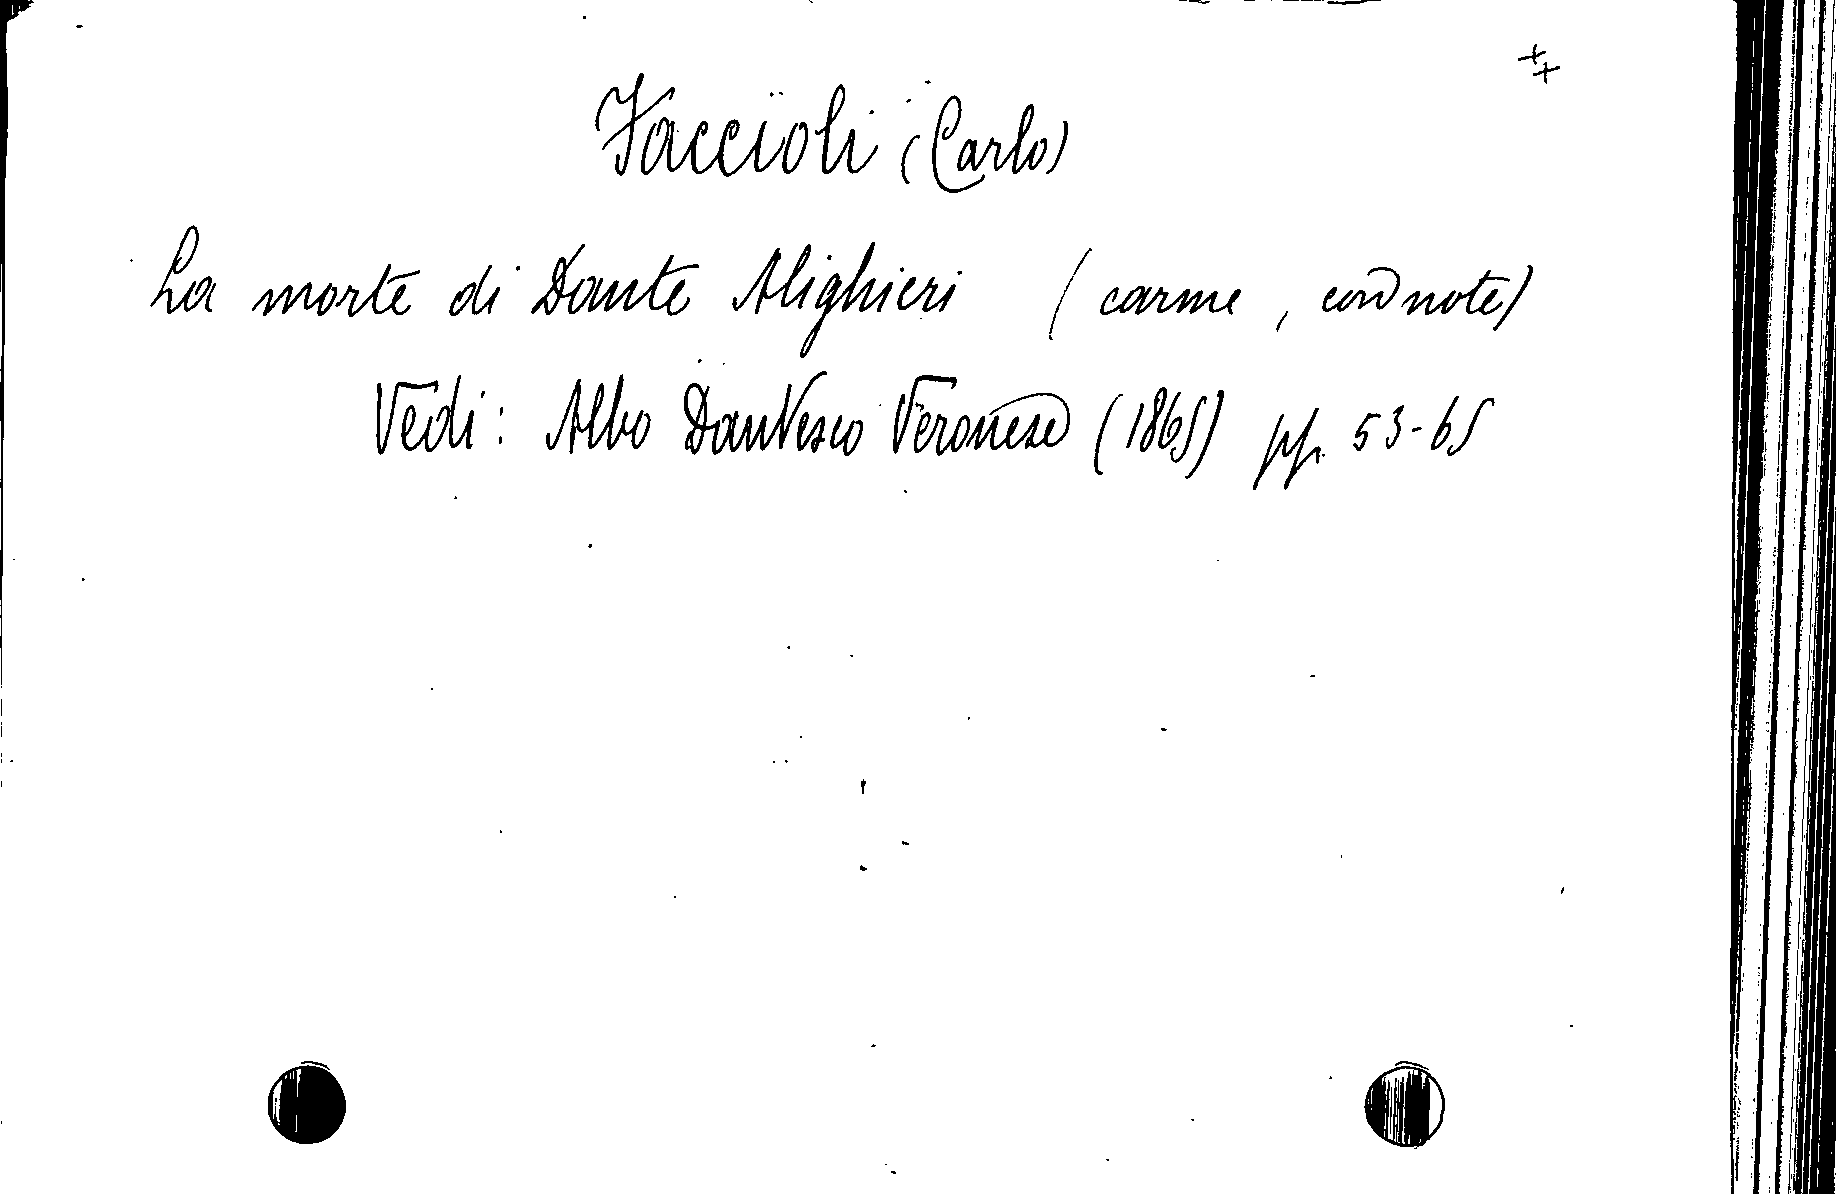 ++
Faccioli (Carlo)
La morte di Dante Alighieri (carme, con note)
Vedi: Albo Dantesco Veronese (1865) pp. 53-65